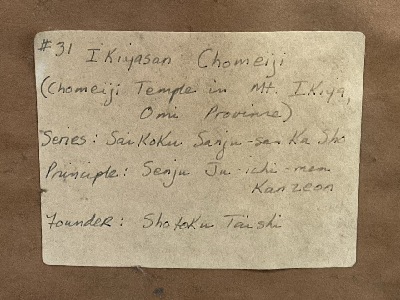 #31 IKiyasan Chomeiji
(Chomeiji Temple in Mt. IKiya,
Omi Province)
Series: SaiKoKu Sanju-san Ka Sho
Principle: Senju Ju-ichi-men
Kanzeon
Founder: Shotoku Taishi